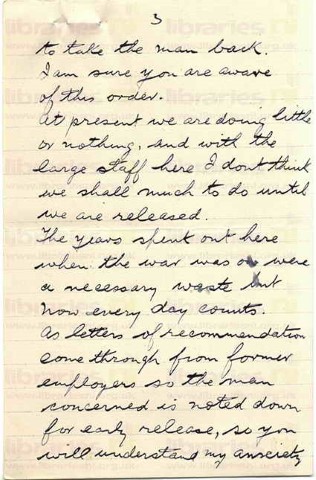 3
to take the man back.
I am sure you are aware
of this order.
At present we are doing little
or nothing, and with the
large staff here I dont think
we shall much to do until
we are released.
The years spent out here
when the war was on were
a necessary waste but
now every day counts.
As letters of recommendation
come through from former
employers so the man
concerned is noted down
for early release, so you
will understand my anxiety